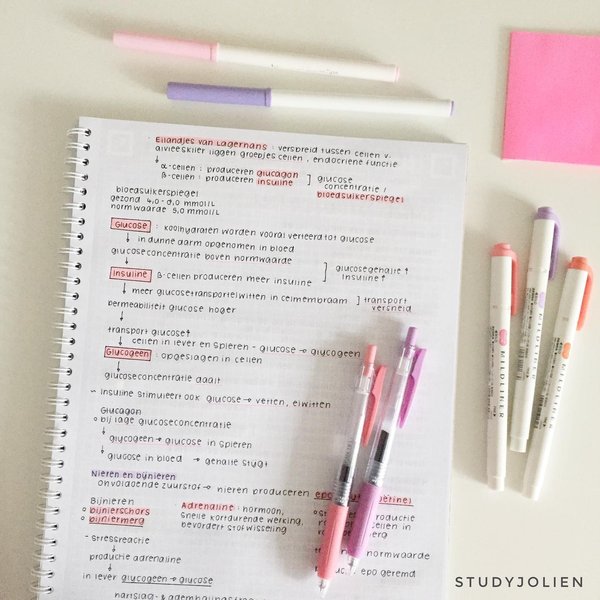 Eilandjes van Lagerhans : verspreid tussen cellen v.
alvleesklier liggen groepjes cellen, endocriene functie
↓
α-cellen : produceren glucagon
β-cellen : produceren insuline
} glucose
concentratie /
bloedsuikerspiegel
bloedsuikerspiegel
gezond 4,0 - 9,0 mmol/L
normwaarde 5,0 mmol/L
Glucose : koolhydraten worden vooral verteerd tot glucose
↓ in dunne darm opgenomen in bloed
glucoseconcentratie boven normwaarde
↓
} glucosegehalte ↑
insuline ↑
Insuline β-cellen produceren meer insuline
↓ meer glucosetransporteiwitten in celmembraan ] transport
versneld
permeabiliteit glucose hoger
↓
transport glucose↑
↓ cellen in lever en spieren - glucose → glycogeen
Glycogeen : opgeslagen in cellen
↓
glucoseconcentratie daalt
~ insuline stimuleert ook glucose → vetten, eiwitten
Glucagon
bij lage glucoseconcentratie
↓
glycogeen → glucose in spieren
↓
glucose in bloed → gehalte stijgt
Nieren en bijnieren
onvoldoende zuurstof → nieren produceren
Bijnieren
bijnierschors
bijniermerg
Adrenaline : hormoon,
snelle kortdurende werking,
bevordert stofwisseling
productie
cellen in
normwaarde
epo geremd
- Stressreactie
↓
productie adrenaline
↓
in lever glycogeen → glucose
hartslag- & ademhalingsfreq
MILDLINER
MILDLINER
MILDLINER
STUDYJOLIEN